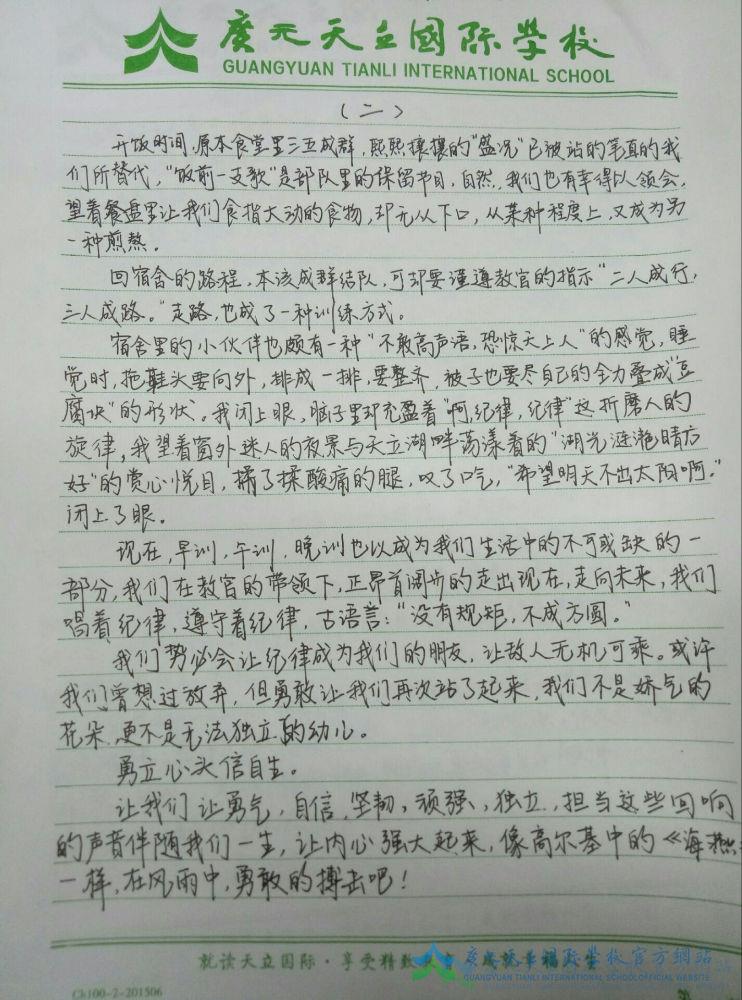 广元天立國际學校
GUANGYUAN TIANLI INTERNATIONAL SCHOOL
（二）
开饭时间，原本食堂里三五成群，熙熙攘攘的“盛况”已被站的笔直的我
们所替代，“饭前一支歌”是部队里的保留节目，自然，我们也有幸得以领会，
望着餐盘里让我们食指大动的食物，却无从下口，从某种程度上，又成为另
一种煎熬。
回宿舍的路程，本该成群结队，可却要谨遵教官的指示“二人成行，
三人成路。”走路，也成了一种训练方式。
宿舍里的小伙伴也颇有一种“不敢高声语，恐惊天上人”的感觉，睡
觉时，拖鞋头要向外，排成一排，要整齐，被子也要尽自己的全力叠成“豆
腐块”的形状。我闭上眼，脑子里却充盈着“啊，纪律，纪律”这折磨人的
旋律，我望着窗外迷人的夜景与天立湖畔荡漾着的“湖光潋滟晴方
好”的赏心悦目，揉了揉酸痛的腿，叹了口气，“希望明天不出太阳啊。”
闭上了眼。
现在，早训，午训，晚训也以成为我们生活中的不可或缺的一
部分，我们在教官的带领下，正昂首阔步的走出现在，走向未来，我们
唱着纪律，遵守着纪律，古语言：“没有规矩，不成方圆。”
我们势必会让纪律成为我们的朋友，让敌人无机可乘。或许
我们曾想过放弃，但勇敢让我们再次站了起来，我们不是娇气的
花朵，更不是无法独立的幼儿。
勇立心头信自生。
让我们让勇气，自信，坚韧，顽强，独立，担当这些回响
的声音伴随我们一生，让内心强大起来，像高尔基中的《海燕
一样，在风雨中，勇敢的搏击吧！
就读天立国际·享受精致 成就幸福人生
廣元天立国际學校官方網站
GUANGYUAN TIANLI INTERNATIONAL SCHOOL OFFICIAL WEBSITE
Ch100-2-201506